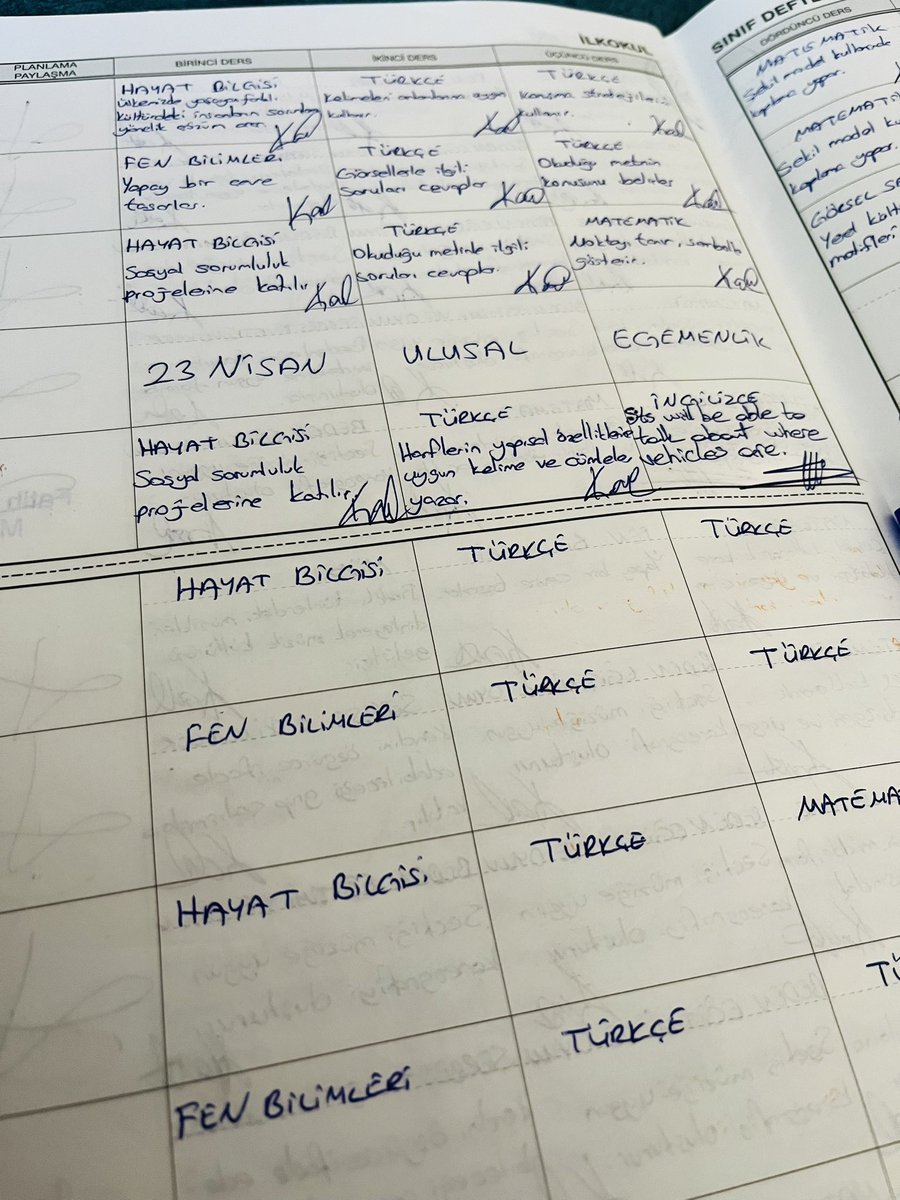 İLKOKUL
SINIF DEFTE
PLANLAMA
PAYLAŞMA
BİRİNCİ DERS
İKİNCİ DERS
ÜÇÜNCÜ DERS
DÖRDÜNCÜ DERS
HAYAT BİLGİSİ
ülkemizde yaşayan farklı
kültürdeki insanların sorunlarına
yönelik çözüm arar.
TÜRKÇE
Kelimeleri anlamlarına uygun
kullanır.
TÜRKÇE
Konuşma stratejilerini
kullanır.
MATEMATİK
Şekil model kullanarak
kaplama yapar.
FEN BİLİMLERİ
Yapay bir çevre
tasarlar.
TÜRKÇE
Görsellerle ilgili
soruları cevaplar
TÜRKÇE
Okuduğu metnin
konusunu belirler
MATEMATİK
Şekil model ku
kaplama yapar.
HAYAT BİLGİSİ
Sosyal sorumluluk
projelerine katılır
TÜRKÇE
Okuduğu metinle ilgili
soruları cevaplar.
MATEMATİK
Noktayı tanır, sembolle
gösterir.
GÖRSEL SA
Yerel kültü
motifleri
23 NİSAN
ULUSAL
EGEMENLİK
HAYAT BİLGİSİ
Sosyal sorumluluk
projelerine katılır
TÜRKÇE
Harflerin yapısal özelliklerine
uygun kelime ve cümleler
yazar.
İNGİLİZCE
Sts will be able to
talk about where
vehicles are.
HAYAT BİLGİSİ
TÜRKÇE
TÜRKÇE
FEN BİLİMLERİ
TÜRKÇE
TÜRKÇE
HAYAT BİLGİSİ
TÜRKÇE
MATEMA
FEN BİLİMLERİ
TÜRKÇE
TÜ